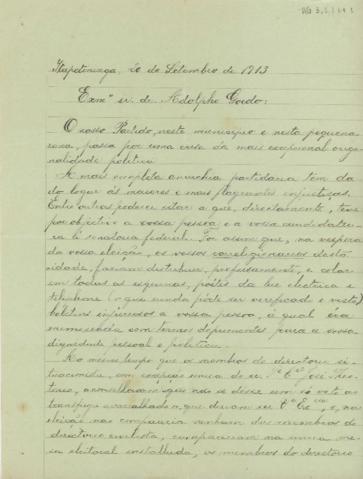 Itapetininga, 20 de Setembro de 1913
Exmº sr. dr. Adolpho Gordo:
O nosso Partido, neste municipio e nesta pequena
zona, passa por uma crise da mais excepcional origi-
nalidade politica.
A mais completa anarchia partidaria tem da-
do logar ás maiores e mais flagrantes injustiças.
Entre outras poderei citar a que, directamente, teve
por objectivo a vossa pessoa e a vossa candidatu-
ra á senatoria federal. Foi assim que, na vespera
da vossa eleição, os vossos correligionarios desta
cidade, faziam distribuir, profusamente, e collar
em todas as esquinas, postes da luz electrica e
telephone (o que ainda póde ser verificado e visto)
boletins injuriosos a vossa pessoa, á qual era
com termos deprimentes para a vossa
dignidade pessoal e politica.
Ao mesmo tempo que os membros do directorio si-
tuacionista, em
aconselhavam que não se désse um só voto ao
que diziam ser V. Exª, e, na
eleição não comparecia nenhum dos membros do
directorio compareceram na unica me-
sa eleitoral installada, os membros do directorio